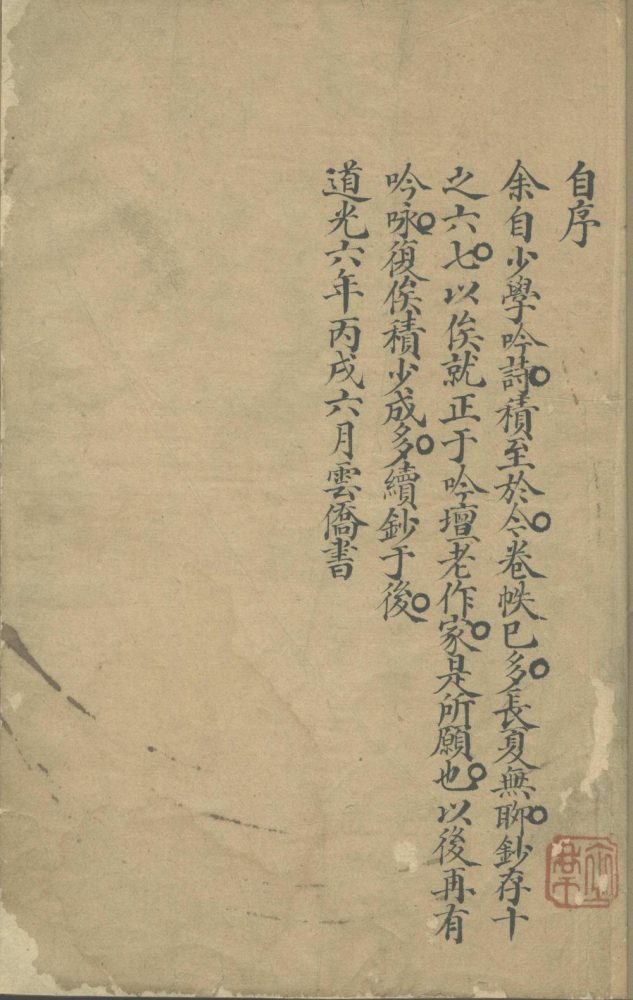 自序
余自少學吟詩。積至於今。卷帙已多。長夏無聊。鈔存十
之六七。以俟就正于吟壇老作家。是所願也。以後再有
吟咏。復俟積少成多。續鈔于後。
道光六年丙戌六月雲僑書